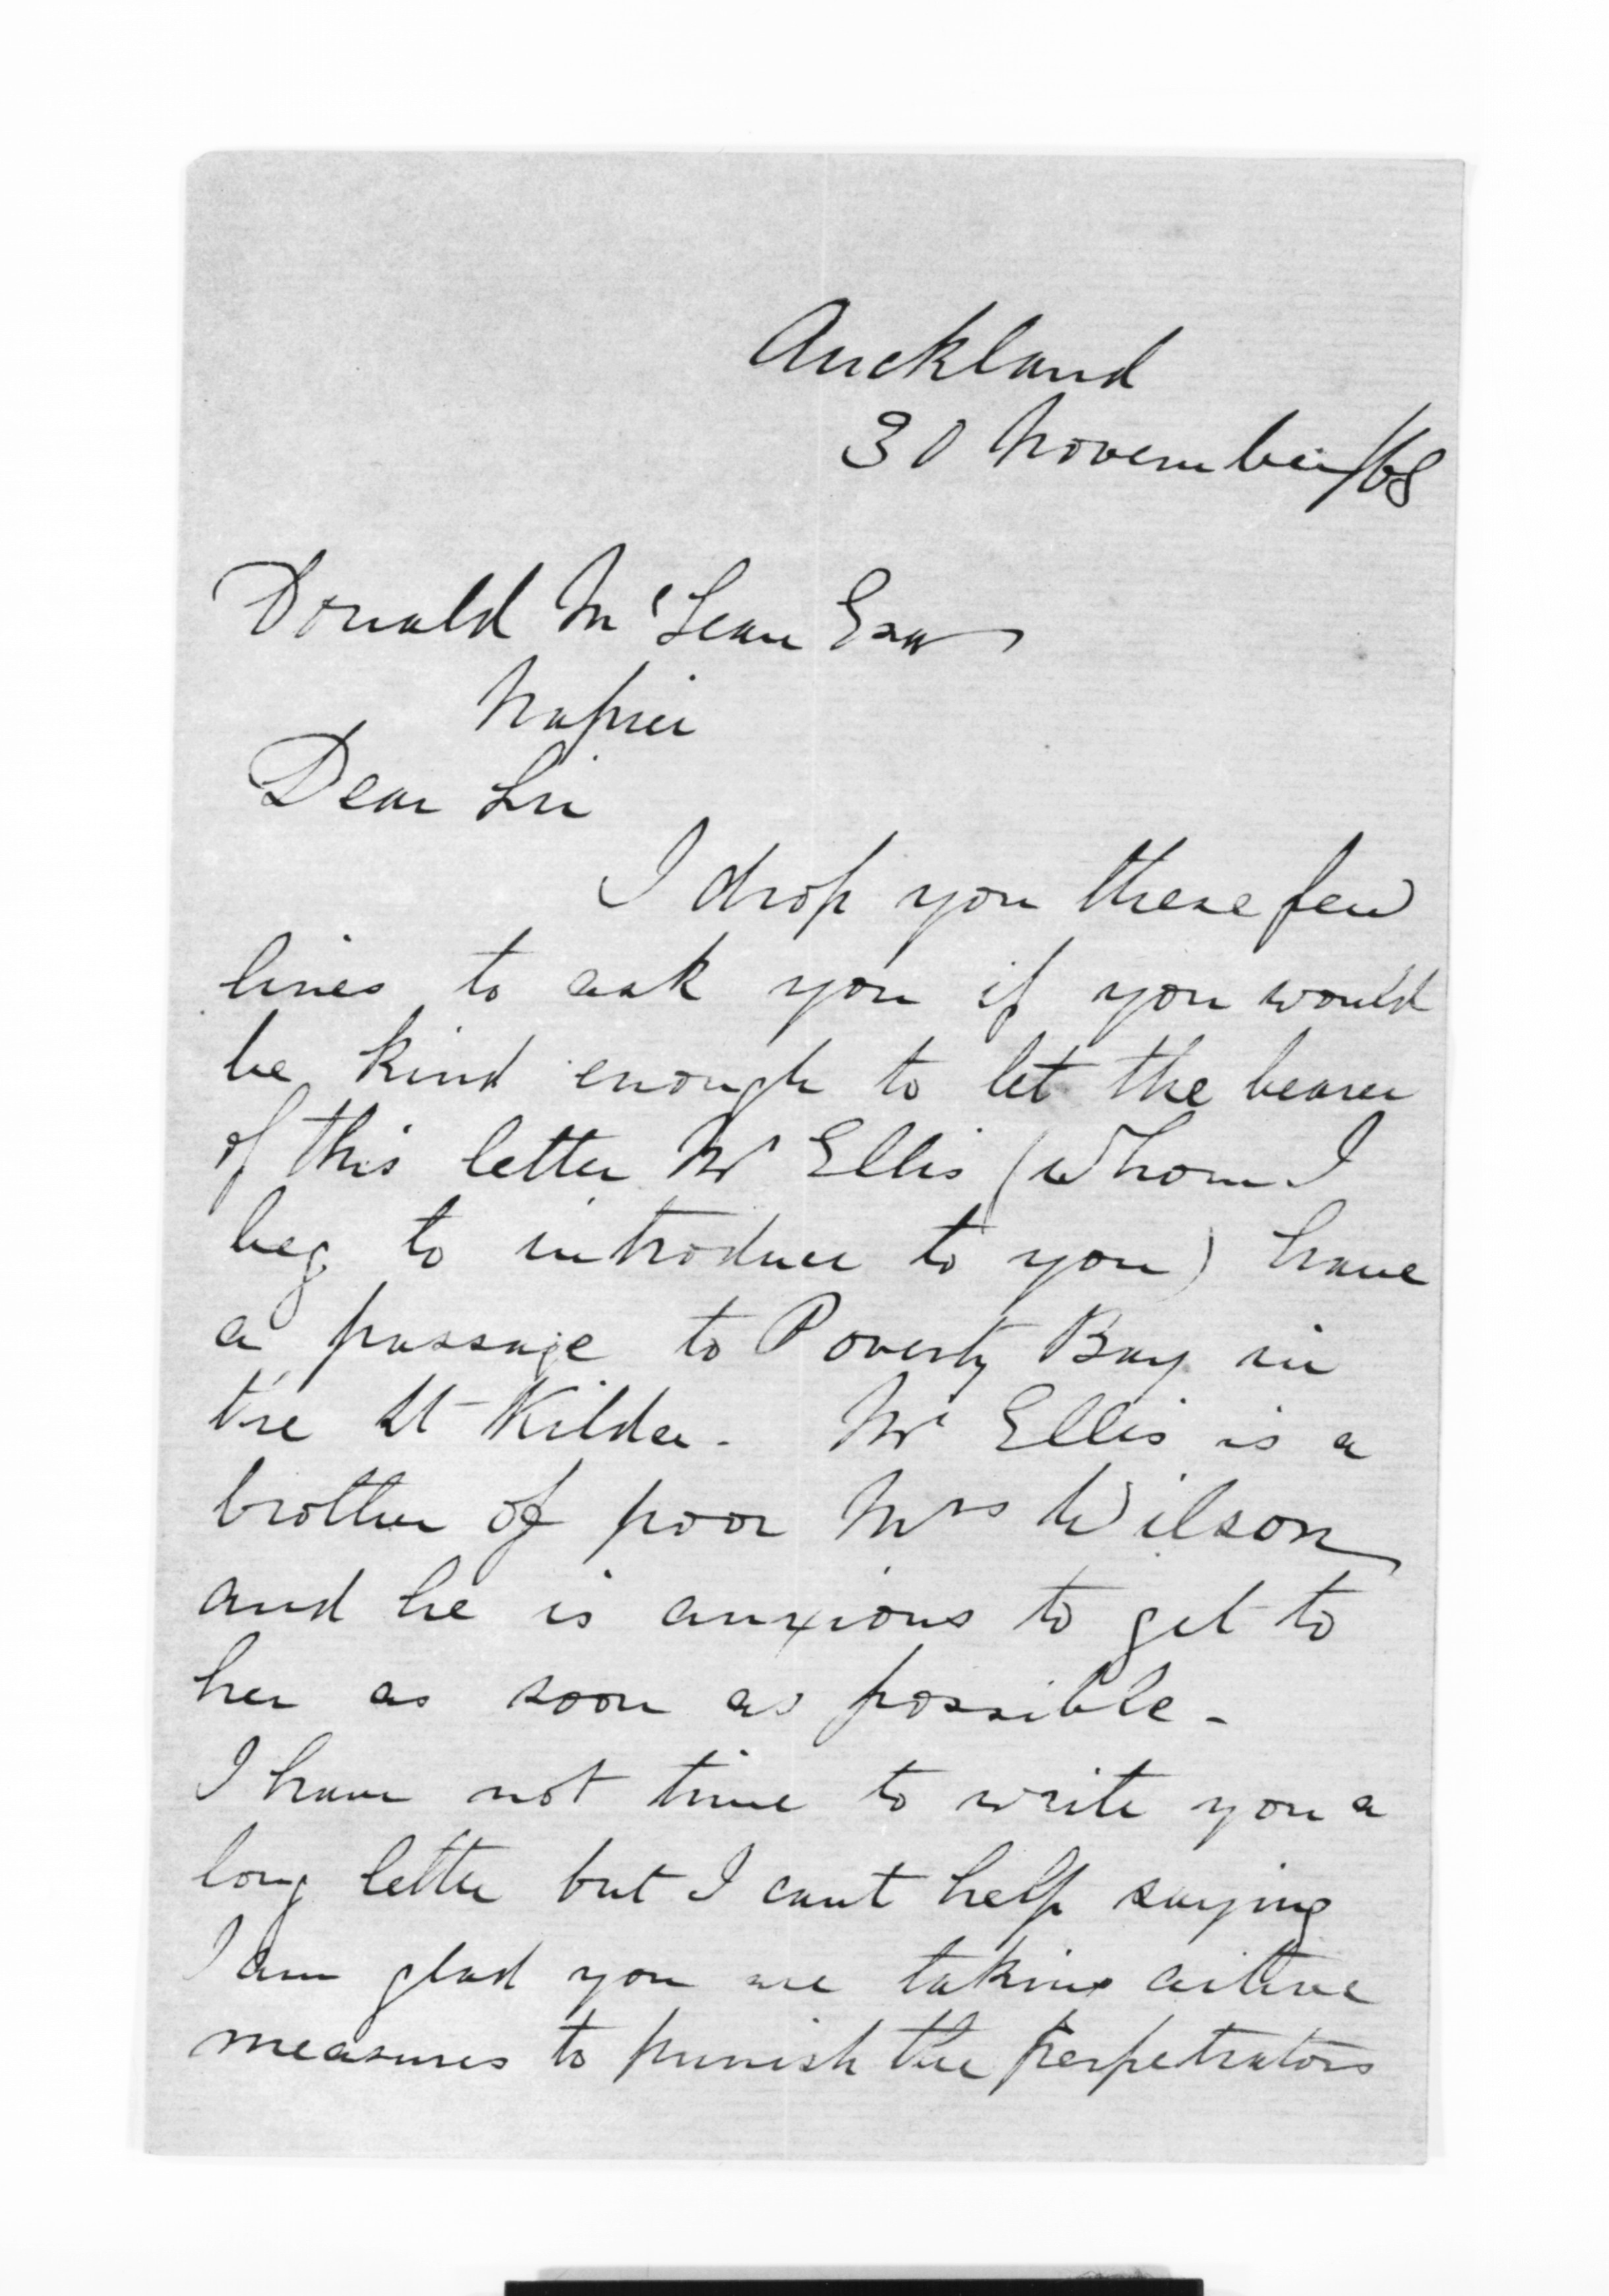 Auckland
30 November/68
Donald McLean Esqr
Napier
Dear Sir
I drop you these few
lines to ask you if you would
be kind enough to let the bearer
of this letter Mr Ellis (whom I
beg to introduce to you) have
a passage to Poverty Bay in
the St Kilda. Mr Ellis is a
brother of poor Mrs Wilson
and he is anxious to get to
her as soon as possible -
I have not time to write you a
long letter but I cant help saying
I am glad you are taking active
measures to punish the perpetrators